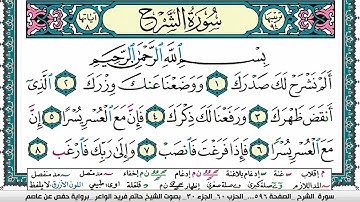 سُورَةُ الشَّرْحِ
ترتيبها ٩٤
آياتها ٨
بِسْمِ اللَّهِ الرَّحْمَٰنِ الرَّحِيمِ
أَلَمْ نَشْرَحْ لَكَ صَدْرَكَ ١ وَوَضَعْنَا عَنكَ وِزْرَكَ ٢ الَّذِي
أَنقَضَ ظَهْرَكَ ٣ وَرَفَعْنَا لَكَ ذِكْرَكَ ٤ فَإِنَّ مَعَ الْعُسْرِ يُسْرًا ٥ إِنَّ
مَعَ الْعُسْرِ يُسْرًا ٦ فَإِذَا فَرَغْتَ فَانصَبْ ٧ وَإِلَىٰ رَبِّكَ فَارْغَب ٨
سورة الشرح الصفحة ٥٩٦ الحزب ٦٠ الجزء ٣٠ بصوت الشيخ حاتم فريد الواعر برواية حفص عن عاصم